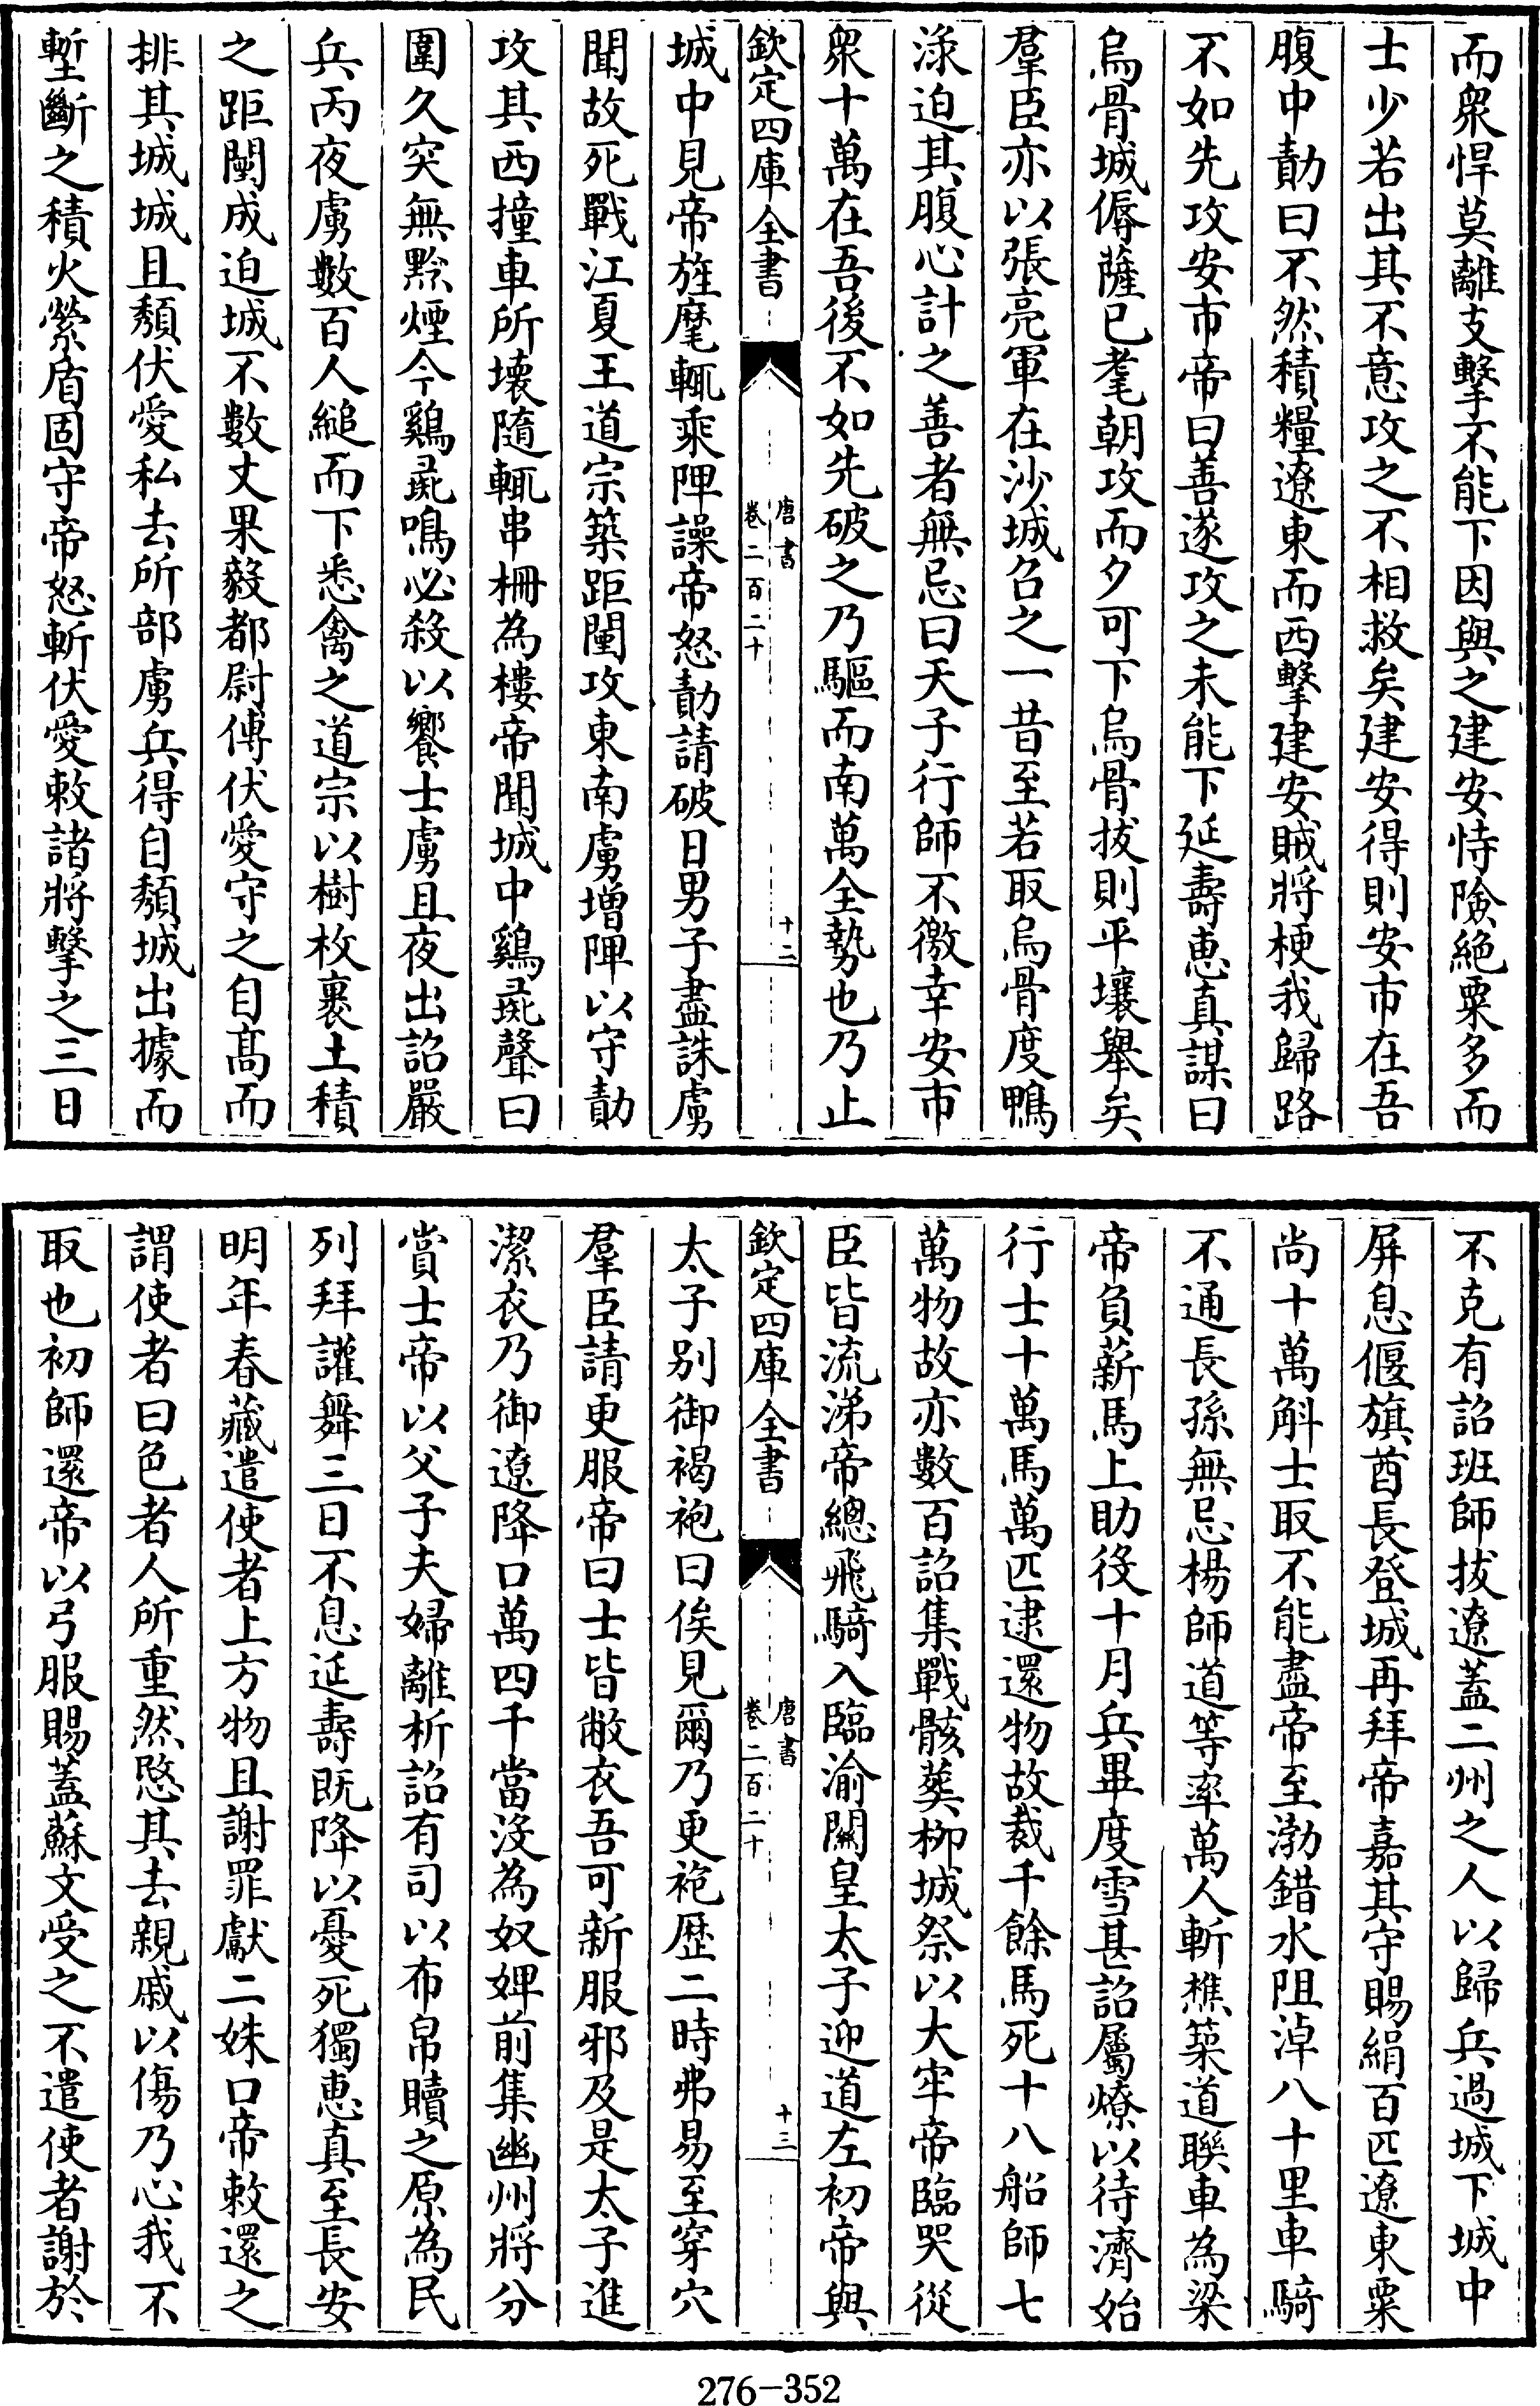 而衆悍莫離支擊不能下因與之建安恃險絶粟多而
士少若出其不意攻之不相救矣建安得則安市在吾
腹中勣曰不然積糧遼東而西擊建安賊將梗我歸路
不如先攻安市帝曰善遂攻之未能下延壽惠真謀曰
烏骨城傉薩已耄朝攻而夕可下烏骨拔則平壤舉矣
羣臣亦以張亮軍在沙城召之一昔至若取烏骨度鴨
淥迫其腹心計之善者無忌曰天子行師不徼幸安市
衆十萬在吾後不如先破之乃驅而南萬全勢也乃止
欽定四庫全書
唐書
卷二百二十
十二
城中見帝旌麾輒乘陴譟帝怒勣請破日男子盡誅虜
聞故死戰江夏王道宗築距闉攻東南虜增陴以守勣
攻其西撞車所壞隨輒串柵為樓帝聞城中鷄彘聲曰
圍久突無黔煙今鷄彘鳴必殺以饗士虜且夜出詔嚴
兵丙夜虜數百人縋而下悉禽之道宗以樹枚裹土積
之距闉成迫城不數丈果毅都尉傅伏愛守之自髙而
排其城城且頽伏愛私去所部虜兵得自頽城出據而
塹斷之積火縈盾固守帝怒斬伏愛敕諸將擊之三日
不克有詔班師拔遼蓋二州之人以歸兵過城下城中
屏息偃旗酋長登城再拜帝嘉其守賜絹百匹遼東粟
尚十萬斛士取不能盡帝至渤錯水阻淖八十里車騎
不通長孫無忌楊師道等率萬人斬樵築道聯車為梁
帝負薪馬上助役十月兵畢度雪甚詔屬燎以待濟始
行士十萬馬萬匹逮還物故裁千餘馬死十八船師七
萬物故亦數百詔集戰骸葬柳城祭以大牢帝臨哭從
臣皆流涕帝總飛騎入臨渝關皇太子迎道左初帝與
欽定四庫全書
唐書
卷二百二十
十三
太子别御褐袍曰俟見爾乃更袍歴二時弗易至穿穴
羣臣請更服帝曰士皆敝衣吾可新服邪及是太子進
潔衣乃御遼降口萬四千當沒為奴婢前集幽州將分
賞士帝以父子夫婦離析詔有司以布帛贖之原為民
列拜讙舞三日不息延壽既降以憂死獨惠真至長安
明年春藏遣使者上方物且謝罪獻二姝口帝敕還之
謂使者曰色者人所重然愍其去親戚以傷乃心我不
取也初師還帝以弓服賜蓋蘇文受之不遣使者謝於
276-352